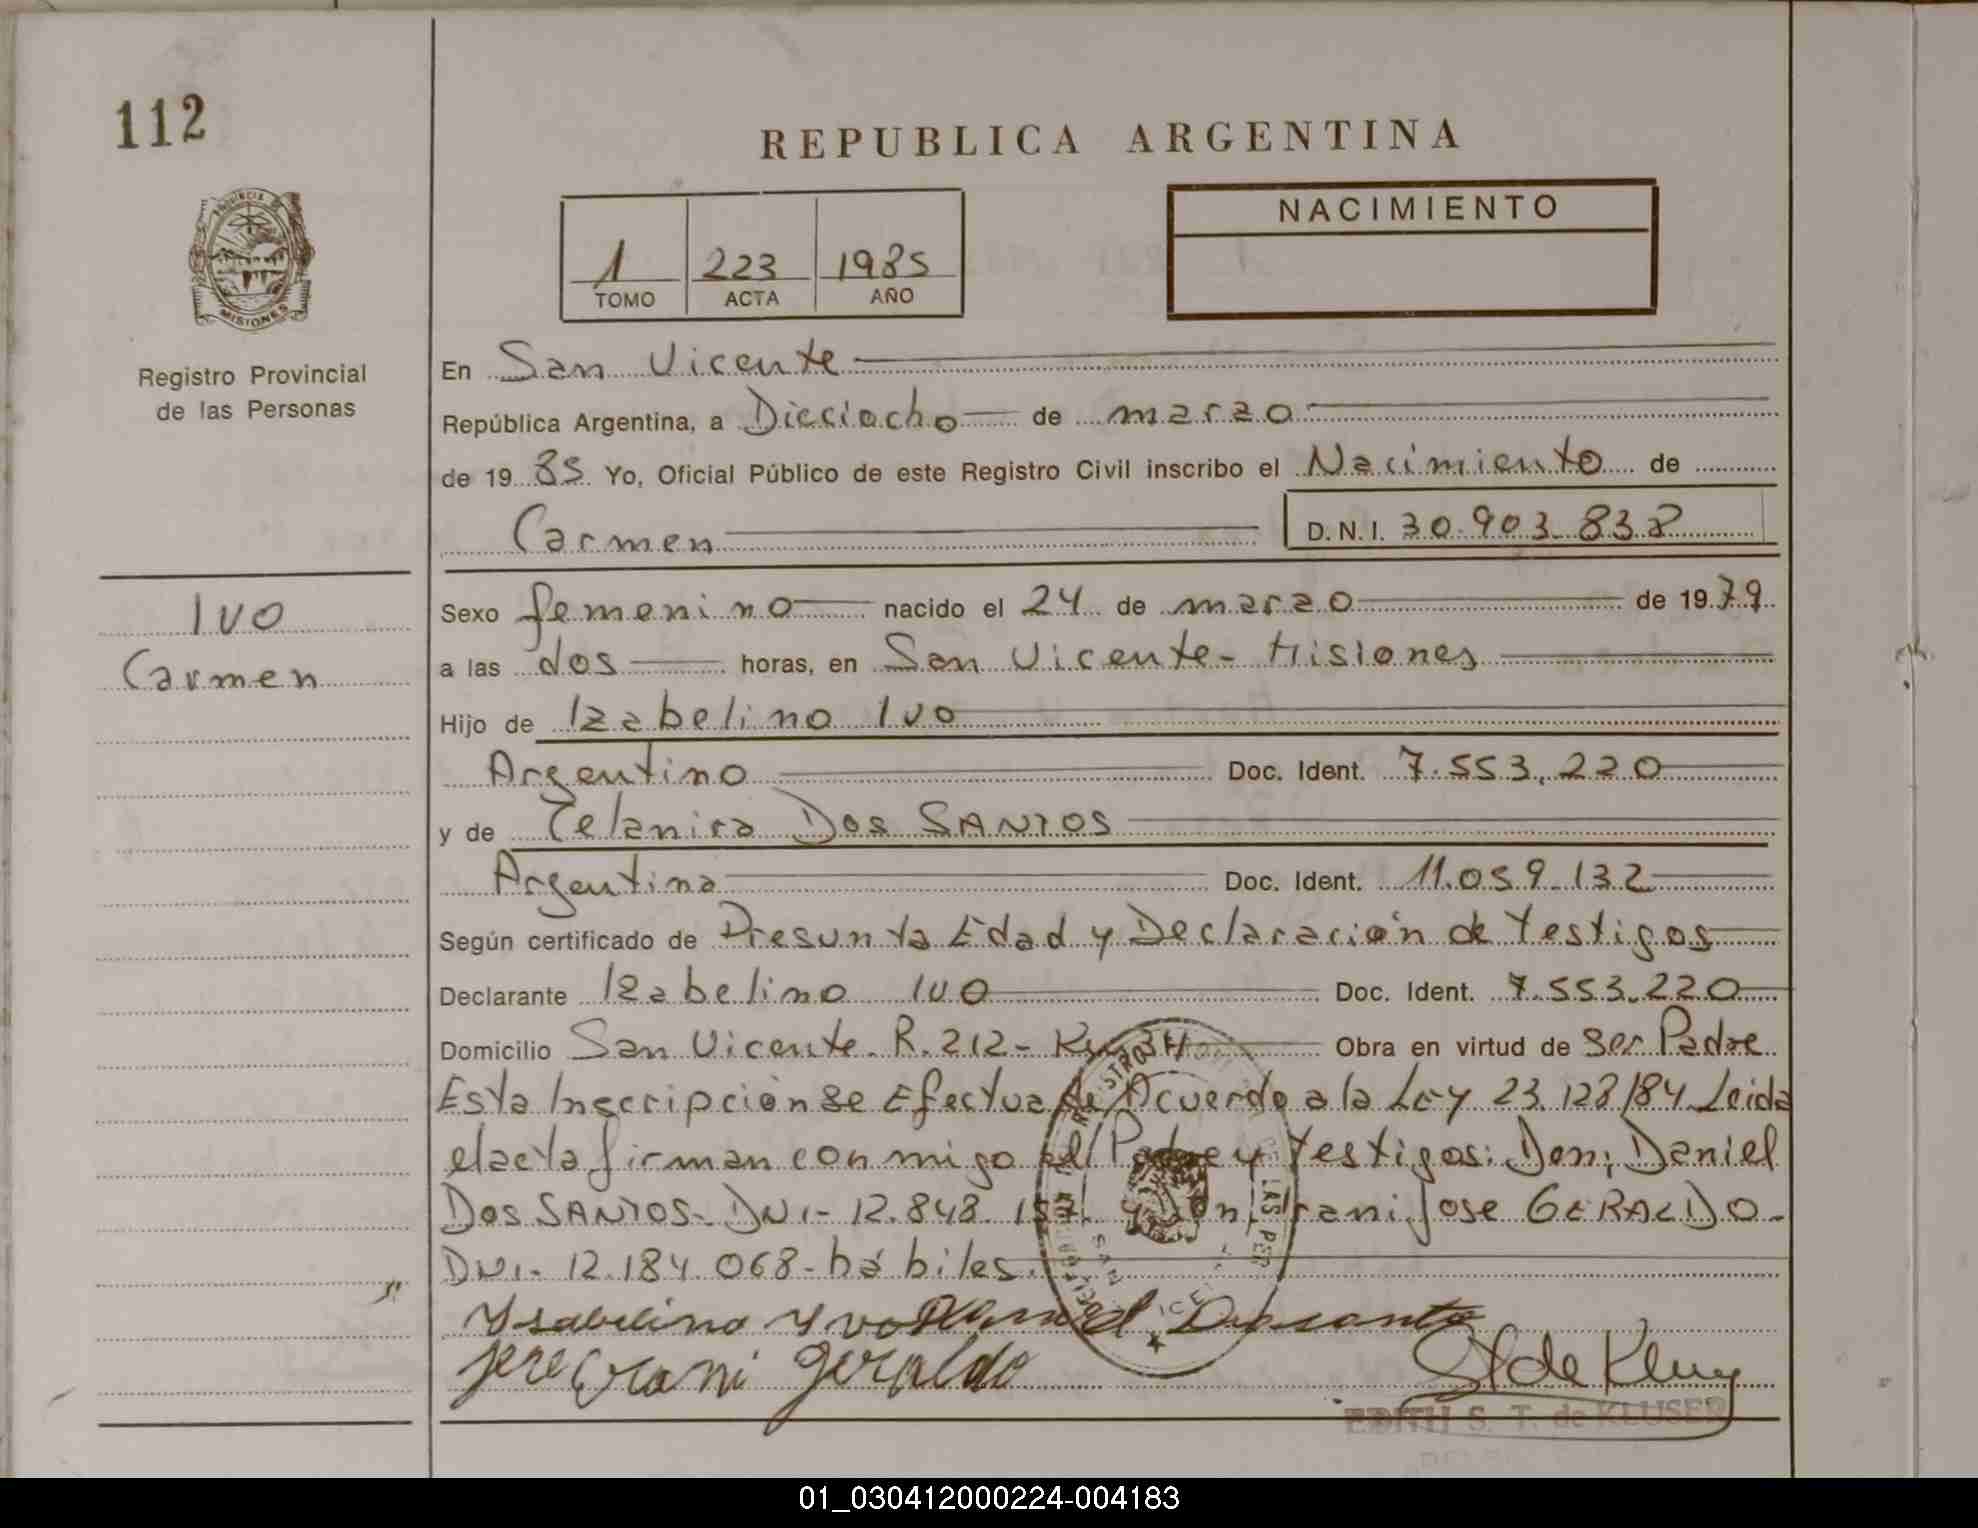 112
REPUBLICA ARGENTINA
NACIMIENTO
1 223 1985
TOMO ACTA AÑO
MISIONES
Registro Provincial
de las Personas
En San Vicente
República Argentina, a Dieciocho de marzo
de 1985 Yo, Oficial Público de este Registro Civil inscribo el Nacimiento de
Carmen D.N.I. 30.903.838
IVO
Carmen
Sexo femenino nacido el 24 de marzo de 1979
a las dos horas, en San Vicente - Misiones
Hijo de Izabelino Ivo
Argentino Doc. Ident. 7.553.220
y de Telanira Dos SANTOS
Argentina Doc. Ident. 11.059.132
Según certificado de Presunta Edad y Declaración de testigos
Declarante Izabelino IVO Doc. Ident. 7.553.220
Domicilio San Vicente. R. 212- Obra en virtud de Ser Padre
Esta Inscripción se Efectua de Acuerdo a la Ley 23.128/84 Leida
el acta firman conmigo el Padre y testigos: Don; Daniel
Dos SANTOS- DNI- 12.848.157. y Don, Irani Jose GERALDO-
DNI- 12.184.068- hábiles.
Ysabelino Yvo
Geraldo
EDITH S. T. de KLUSER
01_030412000224-004183